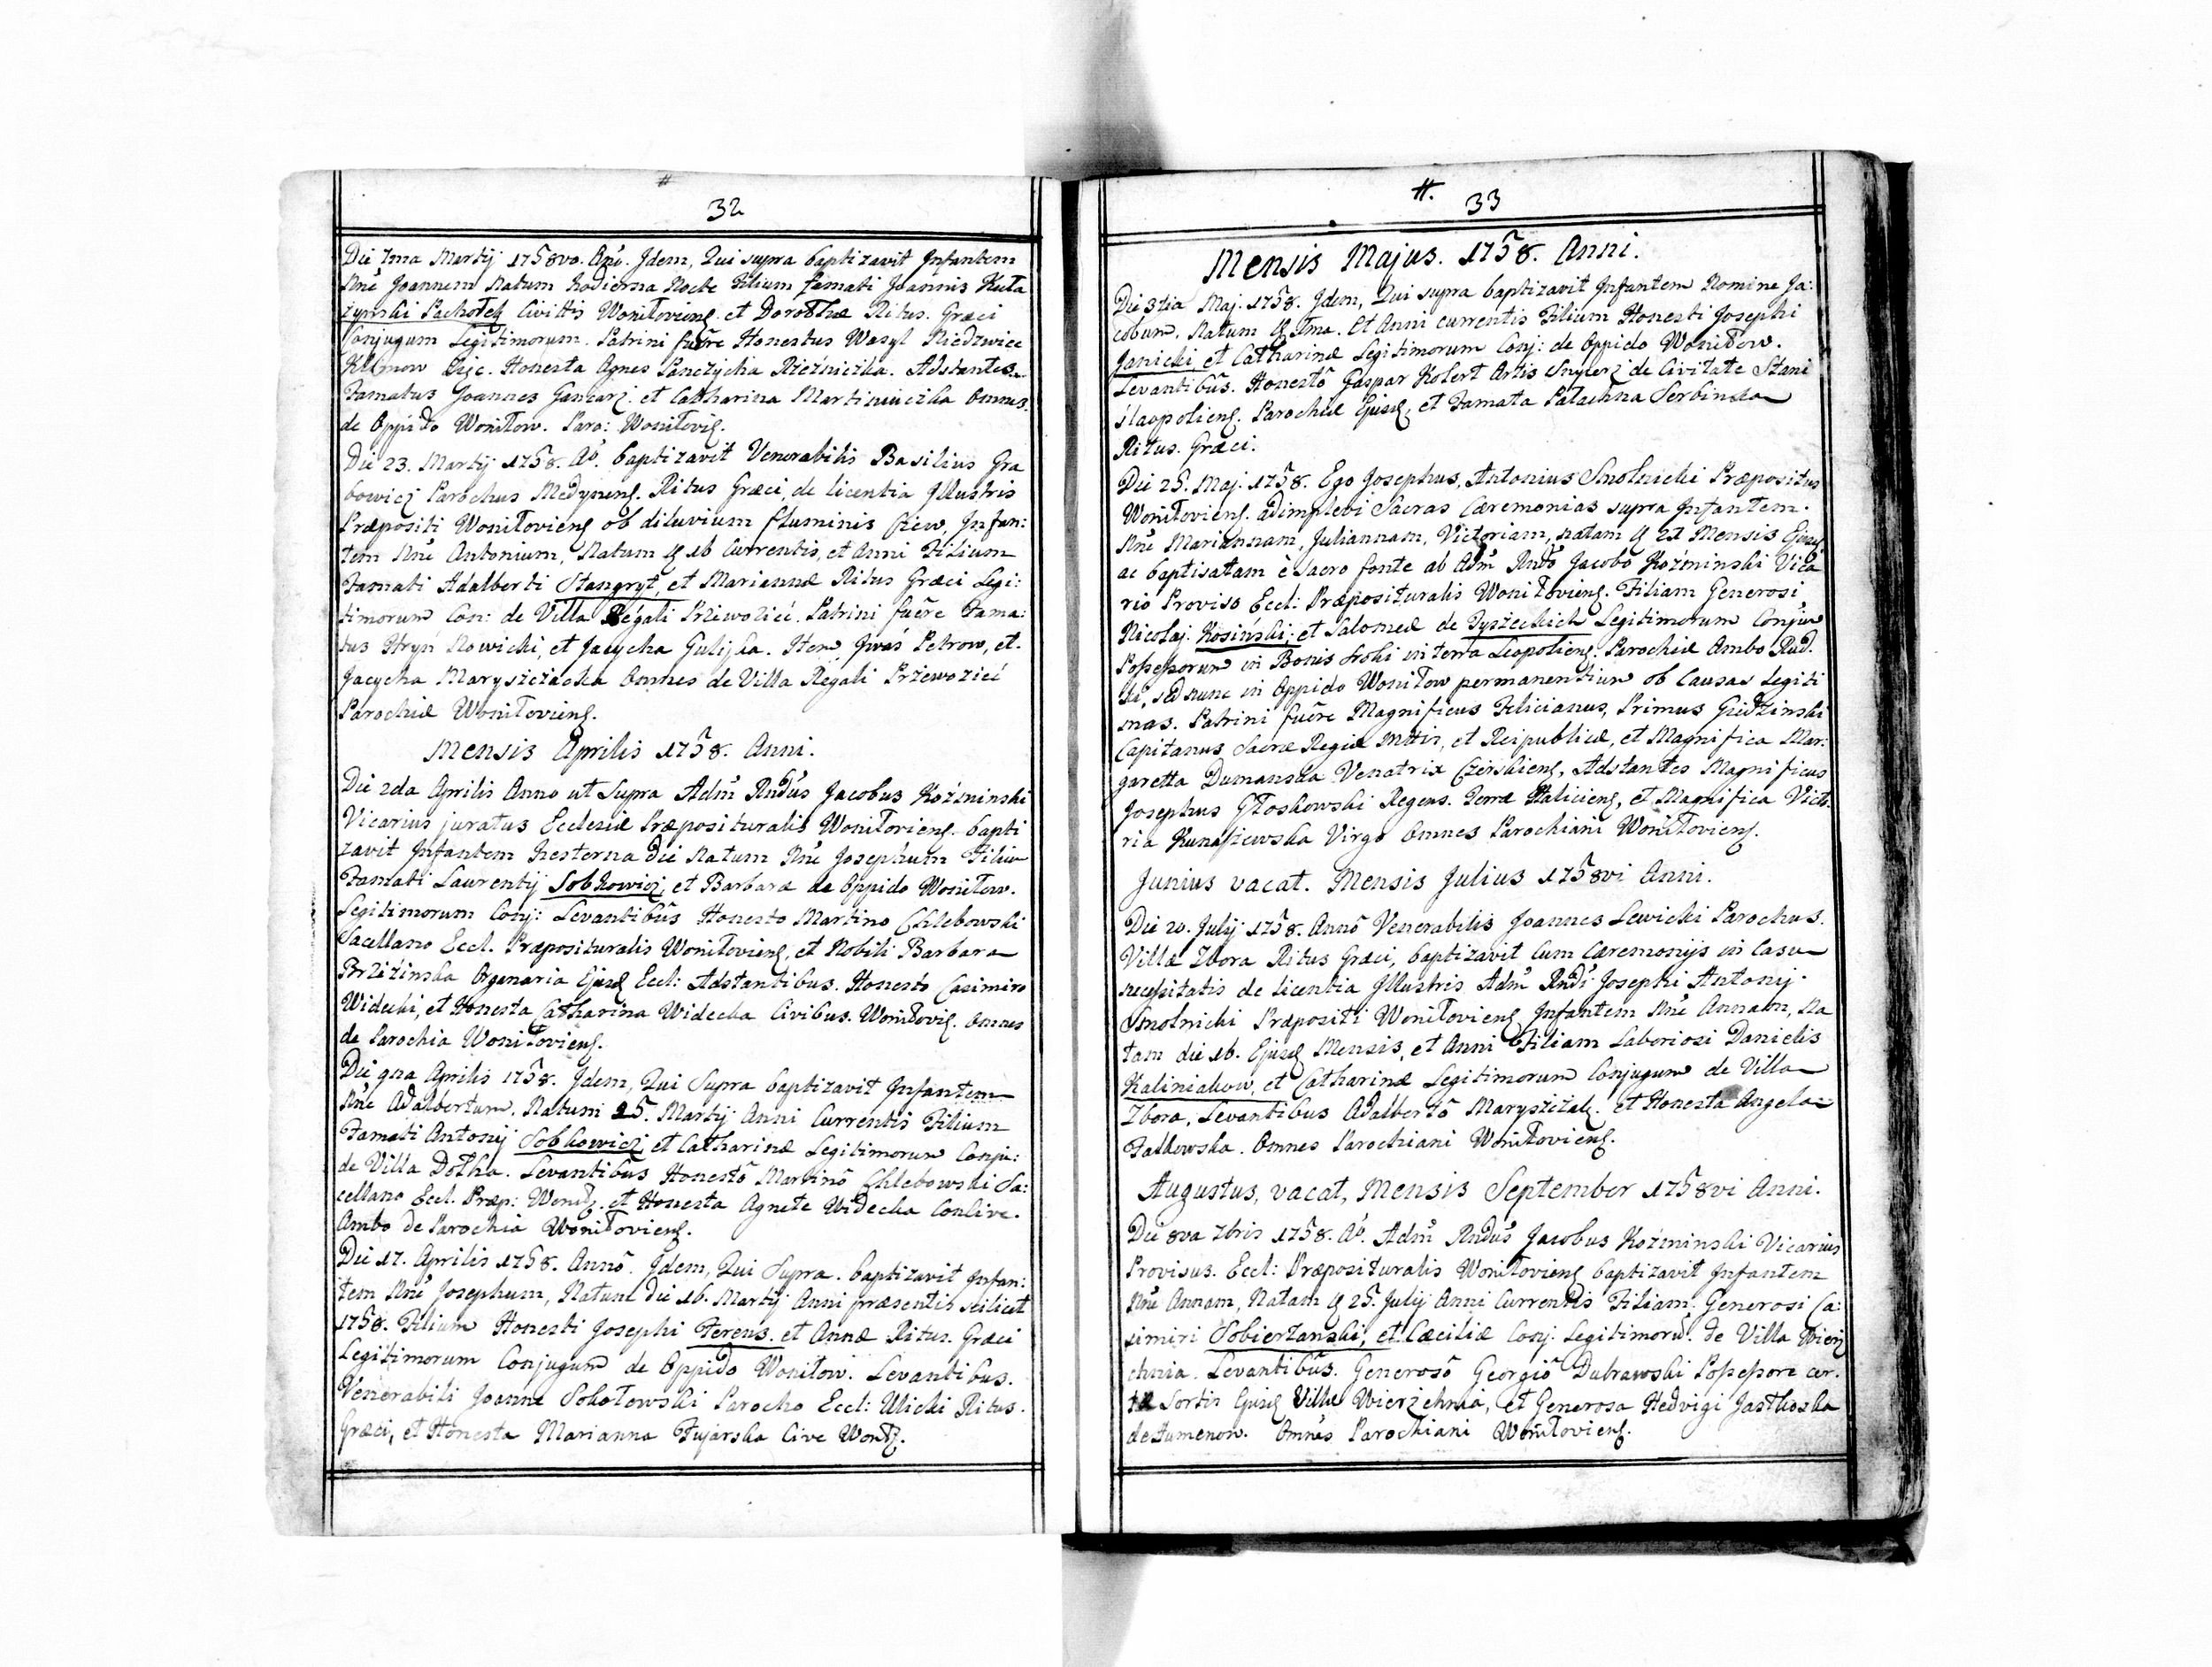 #
32
Die 7ma Martij 1758vo. Ani. Idem, Qui supra baptizavit Infantem
Nne Joannem Natum hodierna Nocte Filium famati Joannis Kuta
żynski Pachołek Civittis Woniłovieng. et Dorothæ Ritus. Græci
Conjugum Legitimorum. Patrini fuēre Honestus Wasyl Niedzwiec
Klimow Honesta Agnes Panczycha Rzezniczka. Adstantes.
Famatus Joannes Gancarz. et Catharina Martiniuczka Omnes.
de Oppido Woniłow. Paro: Woniłovig.
Die 23. Martij 1758. Ao. baptizavit Venerabilis Basilius Gra
bowicz Parochus Medyneng. Ritus Græci, de licentia Illustris
Præpositi Woniłovieng ob diluvium fluminis Infan:
tem Nne Antonium, Natum 16 Currentis, et Anni Filium
Famati Adalberti Stangryt, et Mariannæ Ritus Græci Legi:
timorum Con: de Villa Regali Przewoziec. Patrini fuēre Fama:
tus Hryń Nowicki, et Jacycha Item Iwaś Petrow, et.
Jacycha Maryszczacka Omnes de Villa Regali Przewoziec
Parochiæ Woniłovieng.
Mensis Aprilis 1758. Anni.
Die 2da Aprilis Anno ut Supra Adm Rndus Jacobus Koźminski
Vicarius juratus Ecclesiæ Præposituralis Woniłovieng. bapti
zavit Infantem hesterna die Natum Nne Josephum Filiu
Famati Laurentij Sobkowicz, et Barbara de Oppido Woniłow.
Legitimorum Conj: Levantibus Honesto Martino Chlebowski
Sacellano Eccl. Præposituralis Woniłovieng, et Nobili Barbara
Brziżinska Organaria Ejusd Eccl: Adstantibus. Honesto Casimiro
Widecki, et Honesta Catharina Widecka Civibus. Woniłovig. Omnes
de Parochia Woniłovieng.
Die 9na Aprilis 1758. Idem, Qui Supra baptizavit Infantem
Nne Adalbertum. Natum 25. Martij Anni Currentis Filium
Famati Antonij Sobkowicz, et Catharinæ Legitimorum Conju:
de Villa Dołha. Levantibus Honestō Martinō Chlebowski Sa:
cellano Eccl. Præp: Wonił. et Honesta Agnete Widecka Concive.
Ambo de Parochia Woniłovieng.
Die 17. Aprilis 1758. Annō. Idem, Qui Supra. baptizavit Infan:
tem Nne Josephum, Natum die 16. Martij Anni præsentis scilicet
1758. Filium Honesti Josephi Ferens. et Annæ Ritus. Græci
Legitimorum Conjugum de Oppido Woniłow. Levantibus.
Venerabili Joanne Sokołowski Parocho Eccl: Ulicki Ritus.
Græci, et Honesta Marianna Fujarska Cive Wonił.
#.
33
Mensis Majus. 1758. Anni.
Die 3tia Maj. 1758. Idem, Qui supra baptizavit Infantem Nomine Ja:
cobum, Natum 1ma. Et Anni currentis Filium Honesti Josephi
Janicki, et Catharinæ Legitimorum Conj: de Oppido Woniłow.
Levantibūs. Honestō Gaspar Kolert Artis Snycerz de Civitate Stani
slaopolieng. Parochiæ Ejusd, et Famata Palachna Serbinska
Ritus. Græci.
Die 25. Maj. 1758. Ego Josephus, Antonius Smolnicki Præpositus
Woniłovieng. adimplevi Sacras Cæremonias supra Infantem.
Nne Mariannam, Juliannam, Victoriam, natam 21 Mensis Ejusd
ac baptisatam è Sacro fonte ab Adm Rndo Jacobo Koźminski Vica
rio Proviso Eccl: Præposituralis Woniłovieng. Filiam Generosi
Nicolaj. Kosiński, et Salomeæ de Tyszeckich Legitimorum Conju
Possessorum in Bonis in terra Leopolieng. Parochiæ Ambo Rud.
ki, sed nunc in Oppido Woniłow permanentium ob Causas Legiti
mas. Patrini fuēre Magnificus Felicianus, Primus Gudzinski
Capitanus Sacræ Regiæ Mttis, et Reipublicæ, et Magnifica Mar:
garetta Dumanska Venatrix Czerskieng, Adstantes Magnificus
Josephus Głoskowski Regens. Terræ Haliciens, et Magnifica Victo
ria Kunaszewska Virgo Omnes Parochiani Woniłovieng.
Junius vacat. Mensis Julius 1758vi Anni.
Die 20. Julij 1758. Annō Venerabilis Joannes Lewicki Parochus.
Villæ Zbora Ritus Græci, baptizavit Cum Cæremonijs in Casu
necessitatis de licentia Illustris Adm Rndi Josephi Antonij
Smolnicki Præpositi Woniłovieng Infantem Nne Annam, Na
tam die 16. Ejusd Mensis, et Anni Filiam Laboriosi Danielis
Kaliniakow, et Catharinæ Legitimorum Conjugum de Villa
Zbora, Levantibus Adalbertō Maryszczak. et Honesta Angela
Falkowska. Omnes Parochiani Woniłovieng.
Augustus, vacat, Mensis September 1758vi Anni.
Die 8va 7bris 1758. Ao. Adm Rndus Jacobus Koźminski Vicarius
Provisus. Eccl: Præposituralis Woniłovieng baptizavit Infantem
Nne Annam, Natam 25. Julij Anni Currentis Filiam. Generosi Ca:
simiri Sobierzanski, et Cæciliæ Conj: Legitimorū. de Villa Wierz
chnia. Levantibūs. Generosō Georgiō Dubrawski Possessore cer.
tæ Sortis Ejusd Villæ Wierzchnia, et Generosa Hedvigi
de Humenow. Omnēs Parochiani Woniłovieng.